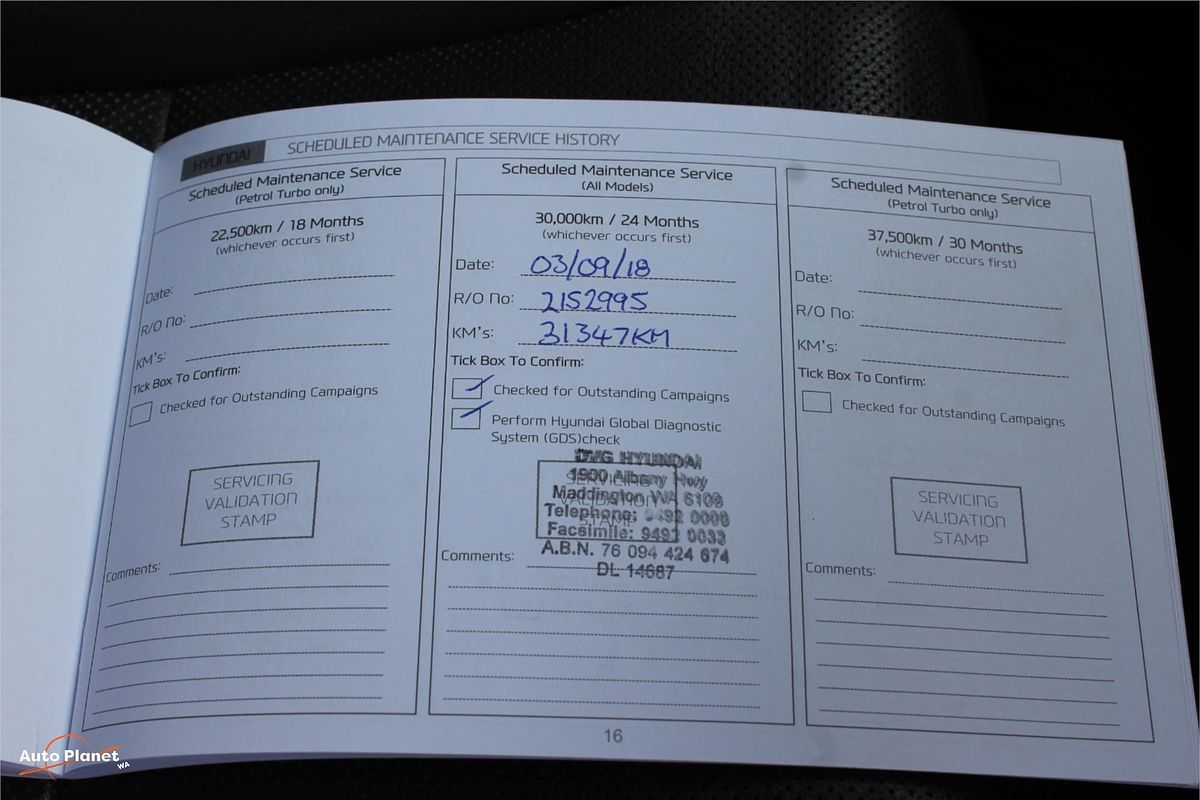 HYUNDAI
SCHEDULED MAINTENANCE SERVICE HISTORY
Scheduled Maintenance Service
(Petrol Turbo only)
22,500km / 18 Months
(whichever occurs first)
Date:
R/O No:
KM's:
Tick Box To Confirm:
Checked for Outstanding Campaigns
SERVICING
VALIDATION
STAMP
Comments:
Scheduled Maintenance Service
(All Models)
30,000km / 24 Months
(whichever occurs first)
Date: 03/09/18
R/O No: 2152995
KM's: 31347KM
Tick Box To Confirm:
Checked for Outstanding Campaigns
Perform Hyundai Global Diagnostic
System (GDS)check
SERVICING
VALIDATION
STAMP
DVG HYUNDAI
1900 Albany Hwy
Maddington WA 6109
Telephone: 9492 0000
Facsimile: 9492 0033
A.B.N. 76 094 424 674
DL 14687
Comments:
Scheduled Maintenance Service
(Petrol Turbo only)
37,500km / 30 Months
(whichever occurs first)
Date:
R/O No:
KM's:
Tick Box To Confirm:
Checked for Outstanding Campaigns
SERVICING
VALIDATION
STAMP
Comments:
16
Auto Planet
WA